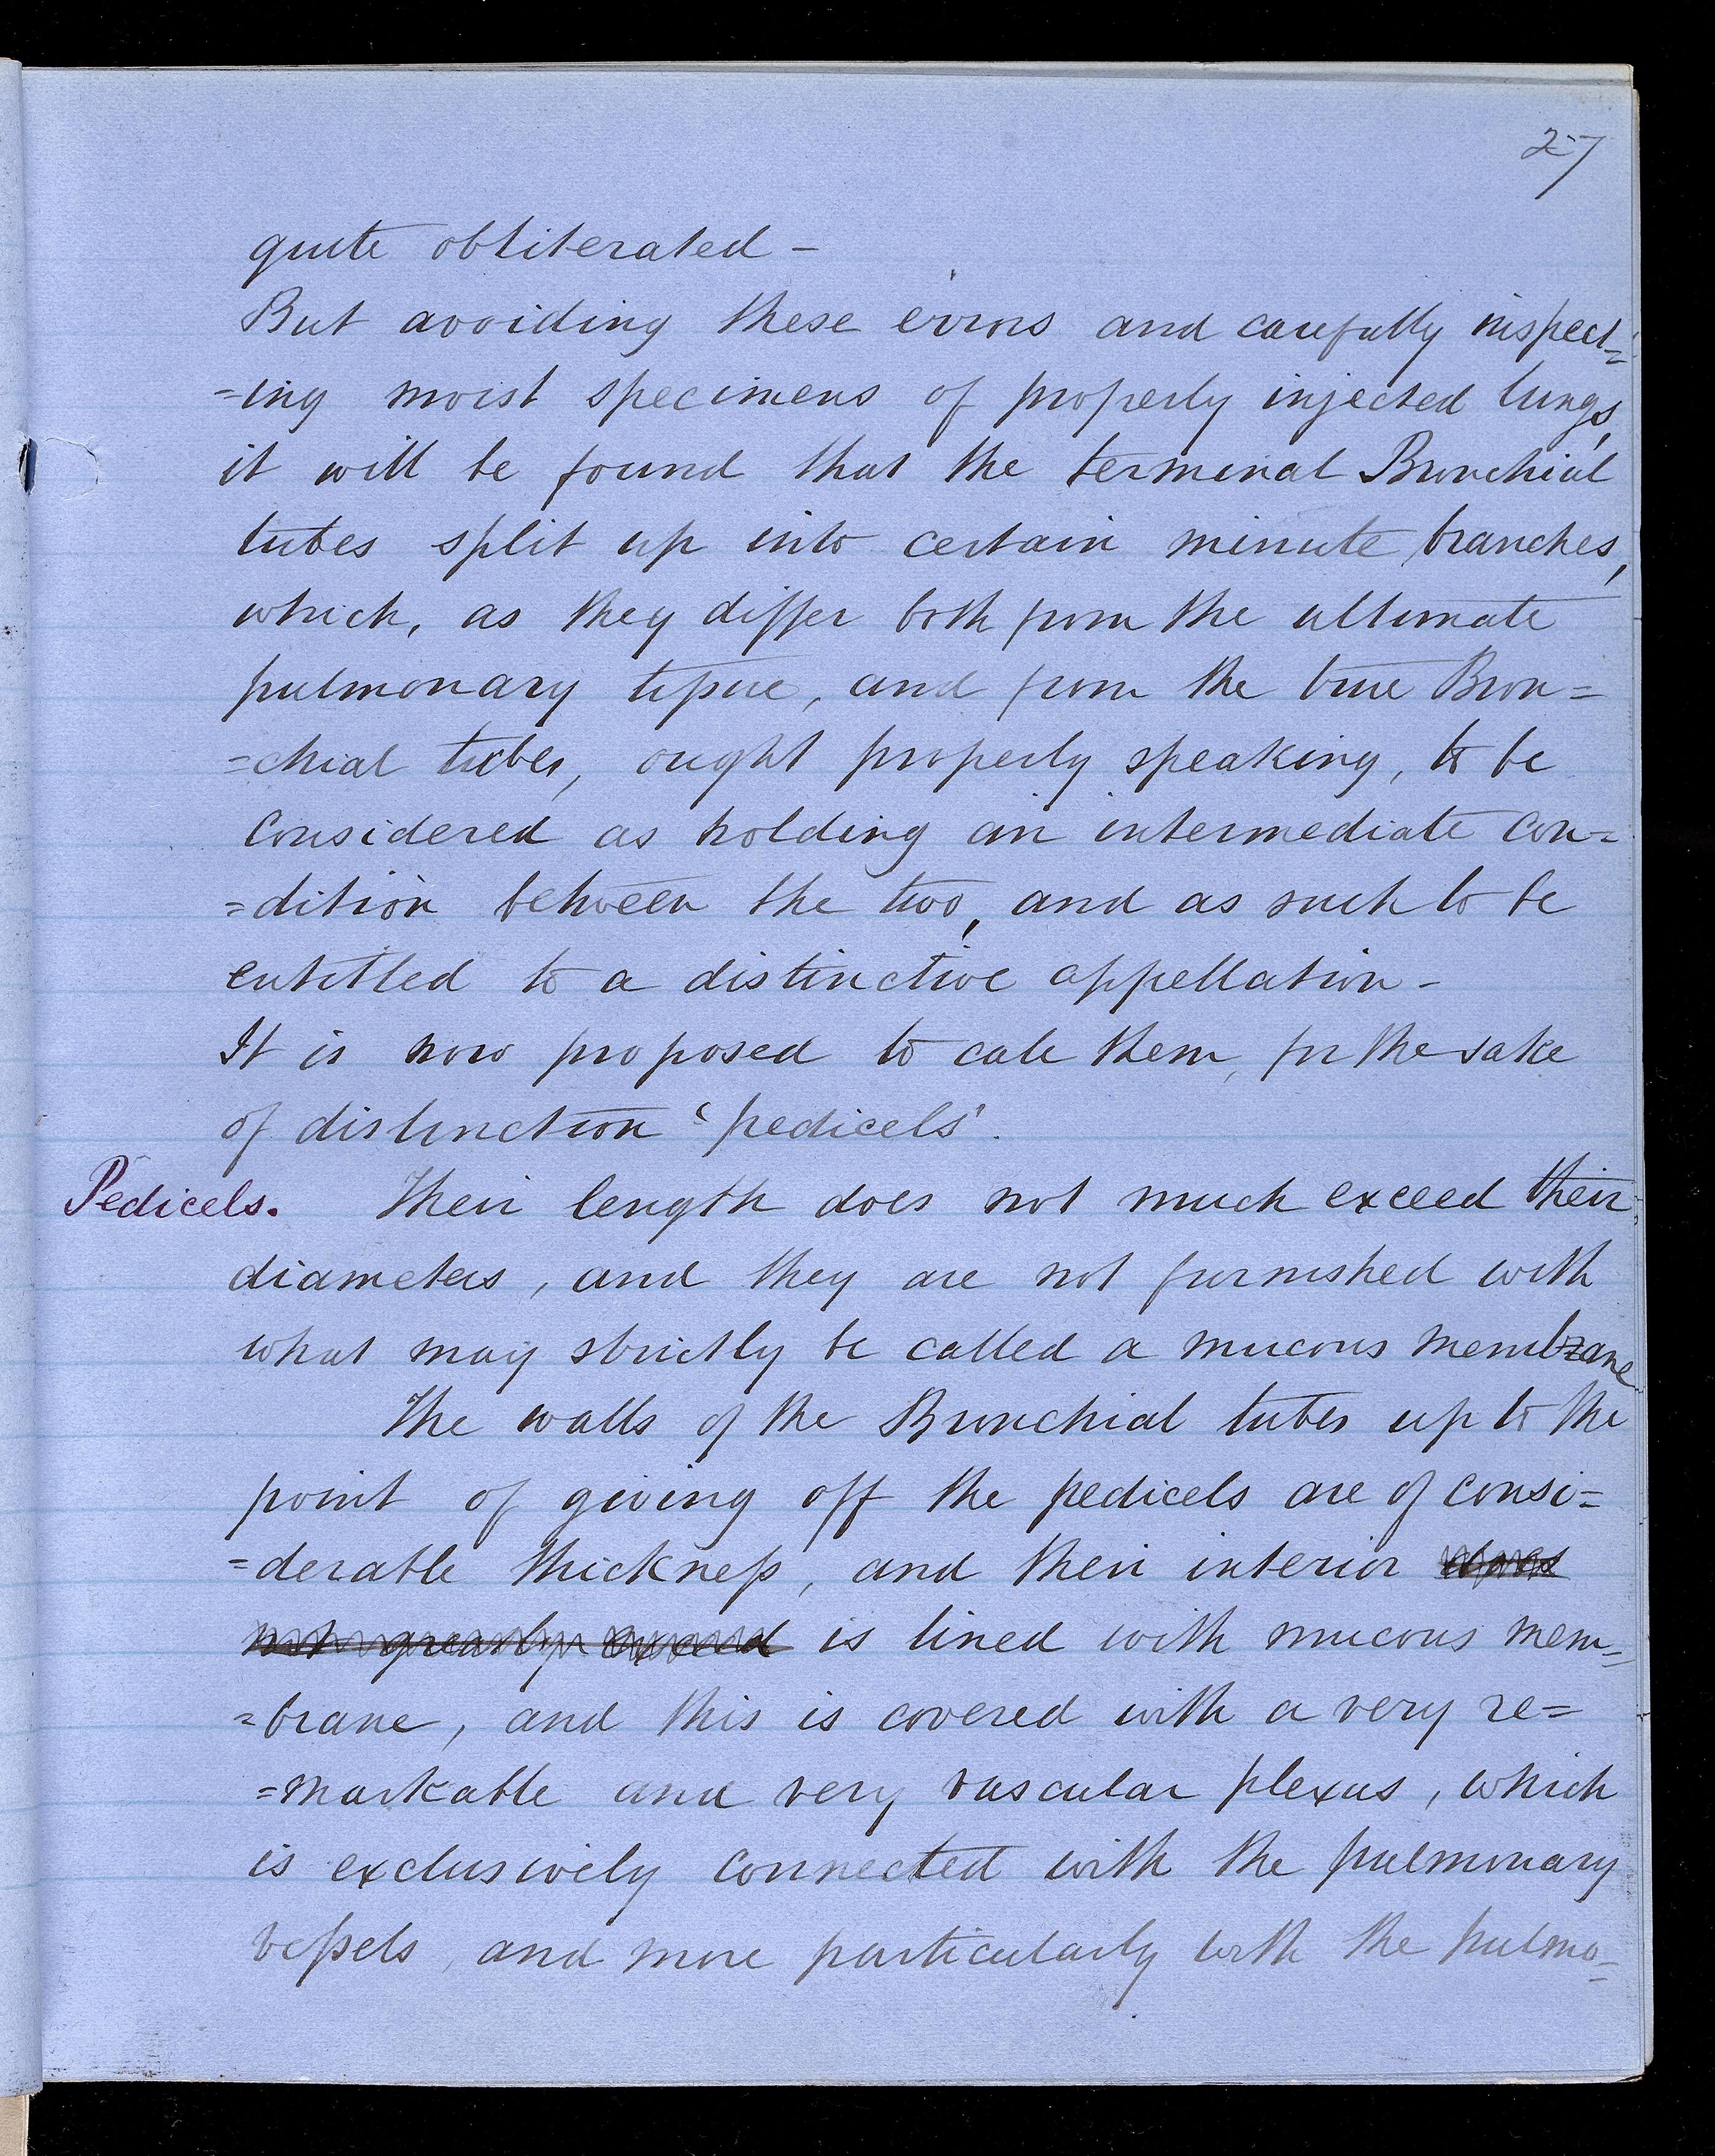 27
quite obliterated –
But avoiding these errors and carefully inspect=
=ing moist specimens of properly injected lungs,
it will be found that the terminal Bronchial
tubes split up into certain minute branches,
which, as they differ both from the ultimate
pulmonary tissue, and from the true Bron=
=chial tubes, ought properly speaking, to be
considered as holding an intermediate con=
=dition between the two, and as such to be
entitled to a distinctive appellation –
It is now proposed to call them, for the sake
of distinction 'pedicels'.
Pedicels. Their length does not much exceed their
diameters, and they are not furnished with
what may strictly be called a mucous membrane
The walls of the Bronchial tubes up to the
point of giving off the pedicels are of consi=
=derable thickness, and their interior does
not greatly exceed is lined with mucous mem=
=brane, and this is covered with a very re=
=markable and very vascular plexus, which
is exclusively connected with the pulmonary
vessels, and more particularly with the pulmo=